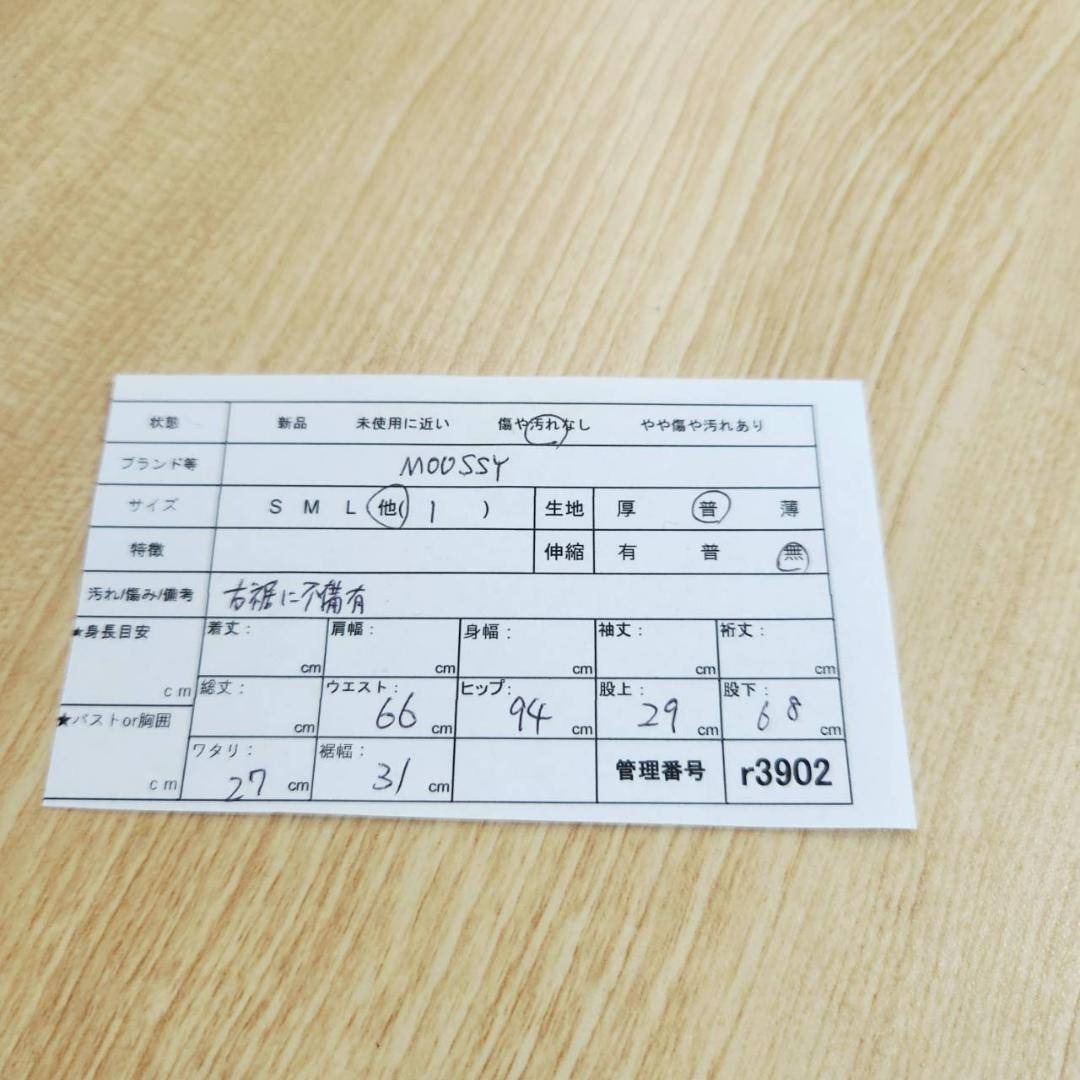 状態 新品 未使用に近い 傷や汚れなし やや傷や汚れあり
ブランド等 MOUSSY
サイズ S M L 他( 1 ) 生地 厚 普 薄
特徴 伸縮 有 普 無
汚れ/傷み/備考 右裾に不備有
★身長目安 cm 着丈: cm 肩幅: cm 身幅: cm 袖丈: cm 裄丈: cm
総丈: cm ウエスト: 66 cm ヒップ: 94 cm 股上: 29 cm 股下: 68 cm
★バストor胸囲 cm ワタリ: 27 cm 裾幅: 31 cm 管理番号 r3902